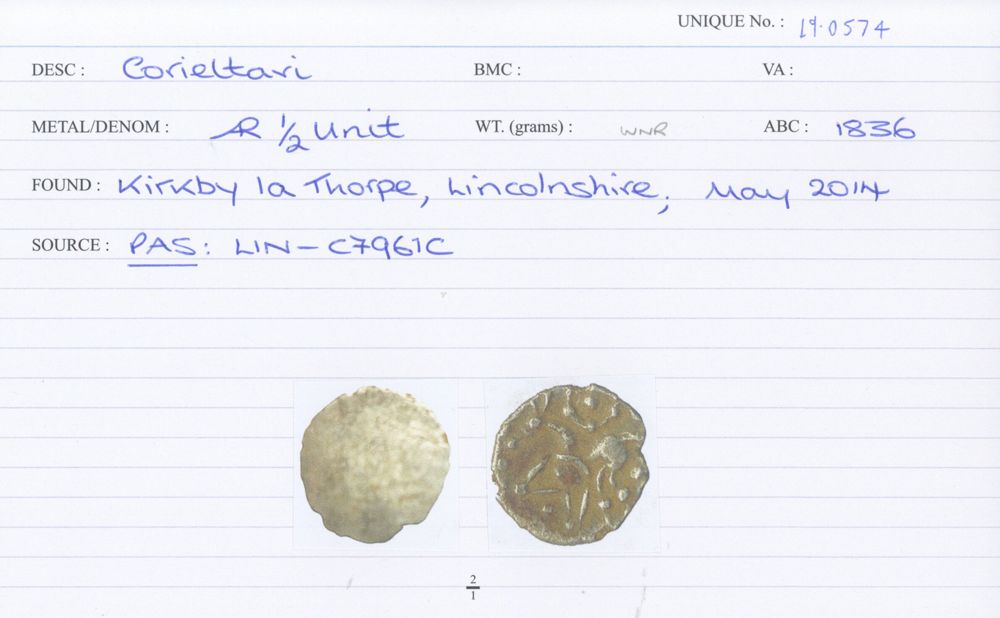 UNIQUE No. : 19.0574
DESC : Corieltavi BMC : VA :
METAL/DENOM : AR 1/2 Unit WT. (grams) : WNR ABC : 1836
FOUND : Kirkby la Thorpe, Lincolnshire, May 2014
SOURCE : PAS: LIN-C7961C
2/1